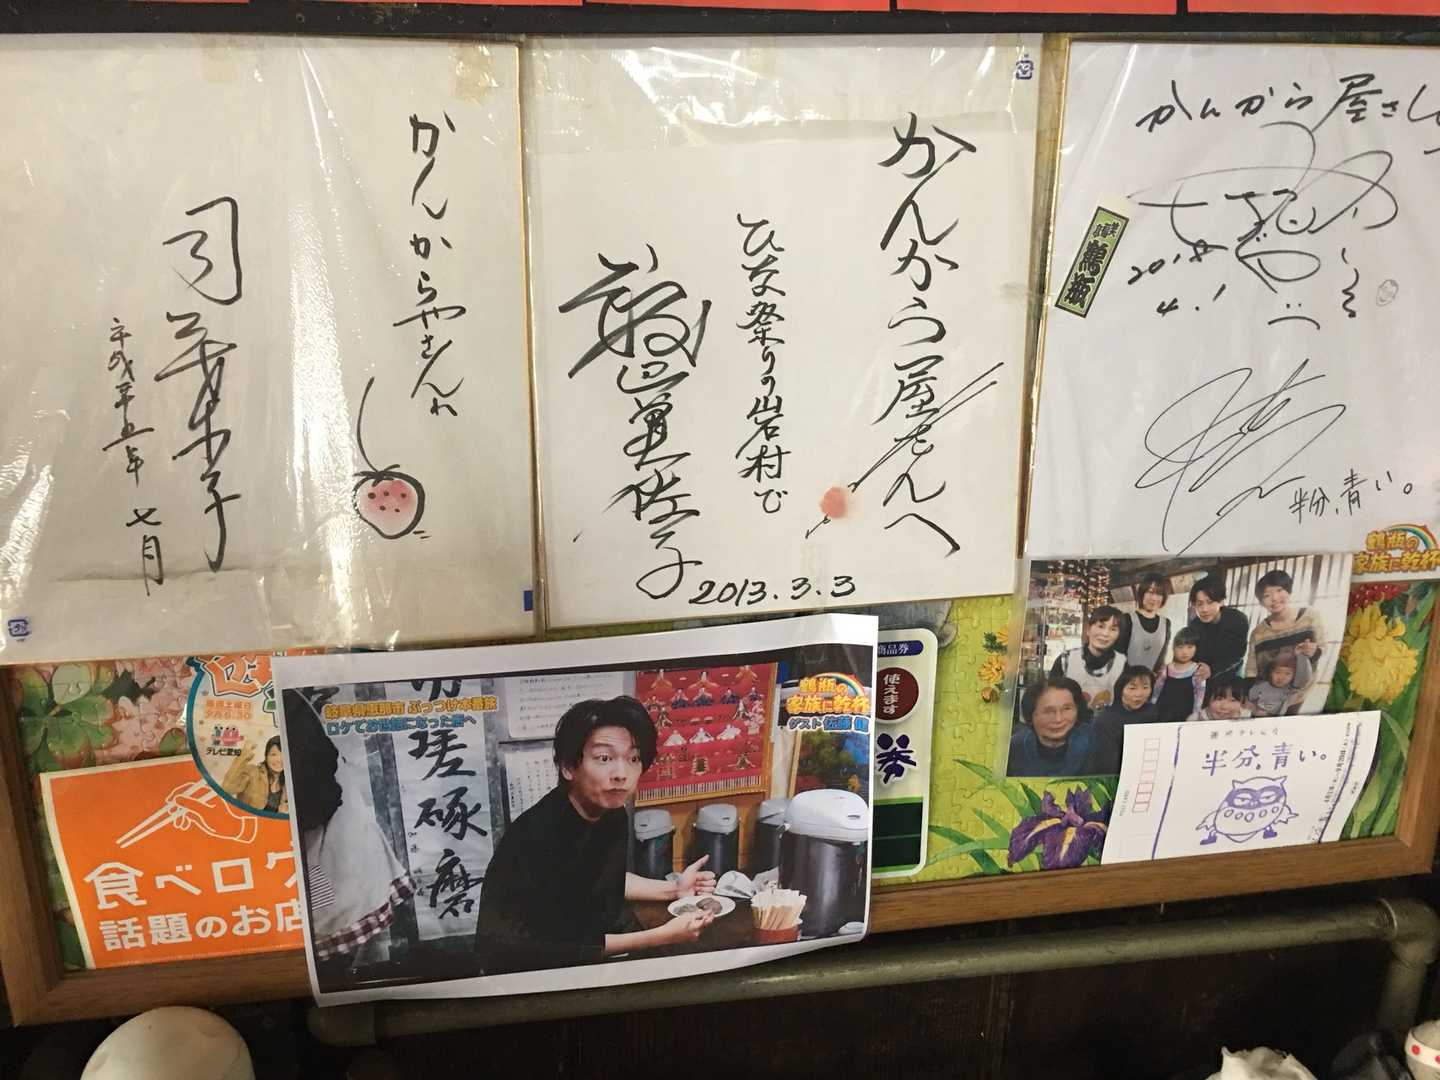 かんからやさんへ
司葉子
平成十五年七月
かんから屋さんへ
ひな祭りの岩村で
2013.3.3
かんから屋さん
鶴瓶
2018
4.1
半分、青い。
鶴瓶の
家族に乾杯
岐阜県恵那市 ぶっつけ本番旅
ロケでお世話になった店へ
鶴瓶の
家族に乾杯
ゲスト 佐藤 健
切
磋
琢
磨
商品券
使えます
券
テレビ愛知
食べログ
話題のお店
半分、青い。